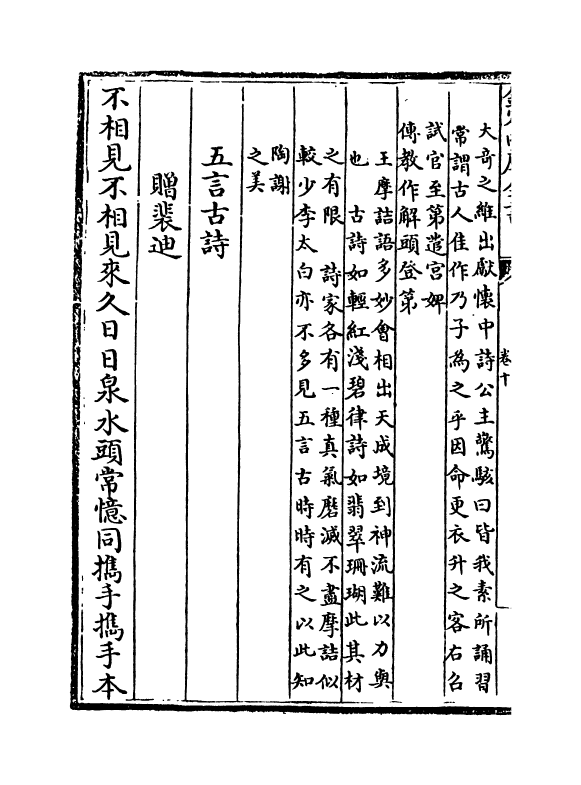 卷十
大奇之維出獻懷中詩公主驚駭曰皆我素所誦習
常謂古人佳作乃子為之乎因命更衣升之客右召
試官至第遣宮婢
傳教作解頭登第
王摩詰語多妙會相出天成境到神流難以力與
也　古詩如輕紅淺碧律詩如翡翠珊瑚此其材
之有限　詩家各有一種真氣磨滅不盡摩詰似
較少李太白亦不多見五言古時時有之以此知
陶謝
之美
五言古詩
贈裴迪
不相見不相見來久日日泉水頭常憶同攜手攜手本